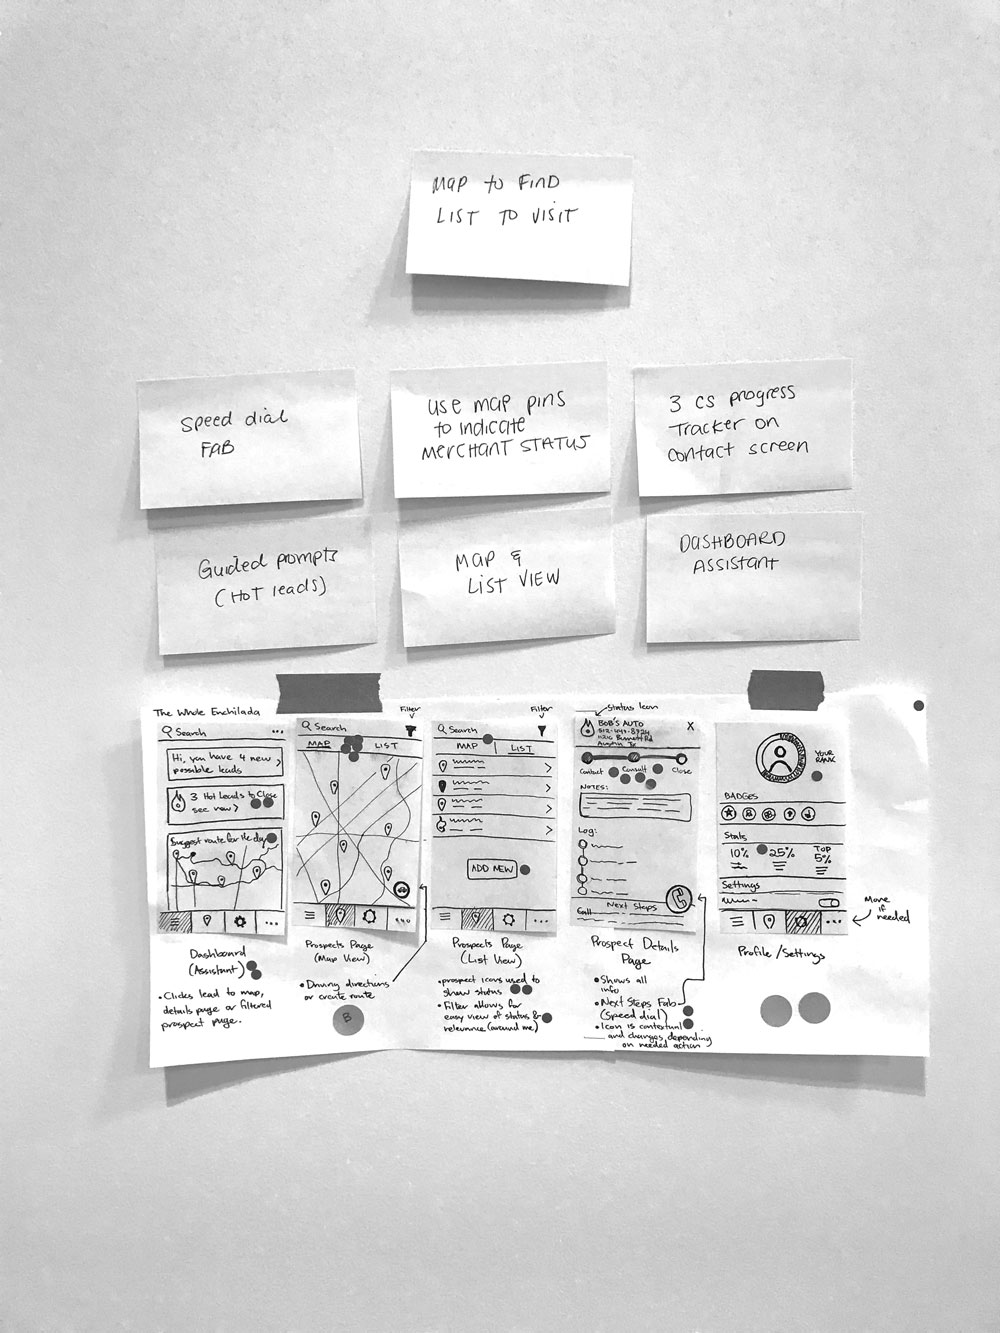 MAP to FIND
LIST TO VISIT
Speed dial
FAB
USE MAP PINS
to indicate
MERCHANT STATUS
3 CS progress
Tracker on
contact screen
Guided prompts
(HOT leads)
MAP &
LIST VIEW
DASHBOARD
ASSISTANT
The Whole Enchilada
Search
Hi, you have 4 new
possible leads
3 Hot Leads to Close
see now >
Suggest route for the day
Dashboard
(Assistant)
• Clicks lead to map,
details page or filtered
prospect page.
Filter
Search
MAP LIST
Prospects Page
(Map View)
• Driving directions
or create route
B
Filter
Search
MAP LIST
ADD NEW
Prospects Page
(List View)
• prospect icons used to
show status
• Filter allows for
easy view of status &
relevance (around me)
Status Icon
BOB'S AUTO
Austin Tx
X
Contact Consult Close
NOTES:
Log:
Next Steps
Call
Prospect Details
Page
• Shows all
info
• Next Steps Fab
(Speed dial)
• Icon is contextual
and changes depending
on needed action
YOUR
RANK
BADGES
Stats
10% 25% TOP
5%
Settings
Move
if
needed
Profile/Settings